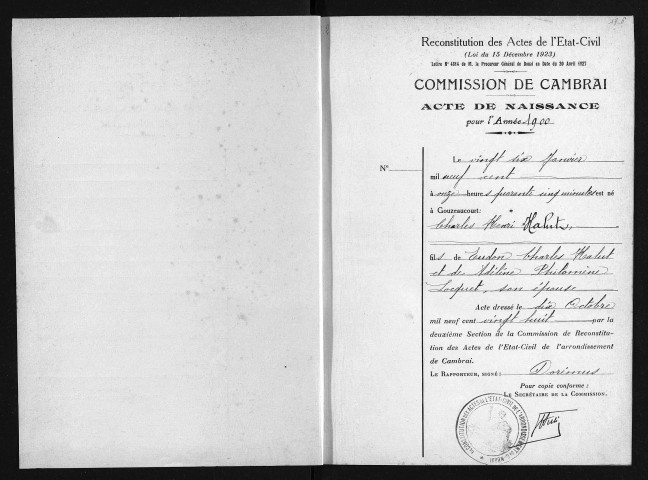 Reconstitution des Actes de l'Etat-Civil
(Loi du 15 Décembre 1923)
Lettre N° 4814 de M. le Procureur Général de Douai en Date du 20 Avril 1927
COMMISSION DE CAMBRAI
ACTE DE NAISSANCE
pour l'Année 1900
N°
Le vingt six Janvier
mil neuf cent
à onze heures quarente cinq minutes est né
à Gouzeaucourt:
Charles Henri Halut,
fils de Eudon Charles Halut
et de Adéline Philomène
Locquet, son épouse
Acte dressé le dix Octobre
mil neuf cent vingt huit par la
deuxième Section de la Commission de Reconstitu-
tion des Actes de l'Etat-Civil de l'arrondissement
de Cambrai.
LE RAPPORTEUR, SIGNÉ: Dorémus
Pour copie conforme:
LE SECRÉTAIRE DE LA COMMISSION.